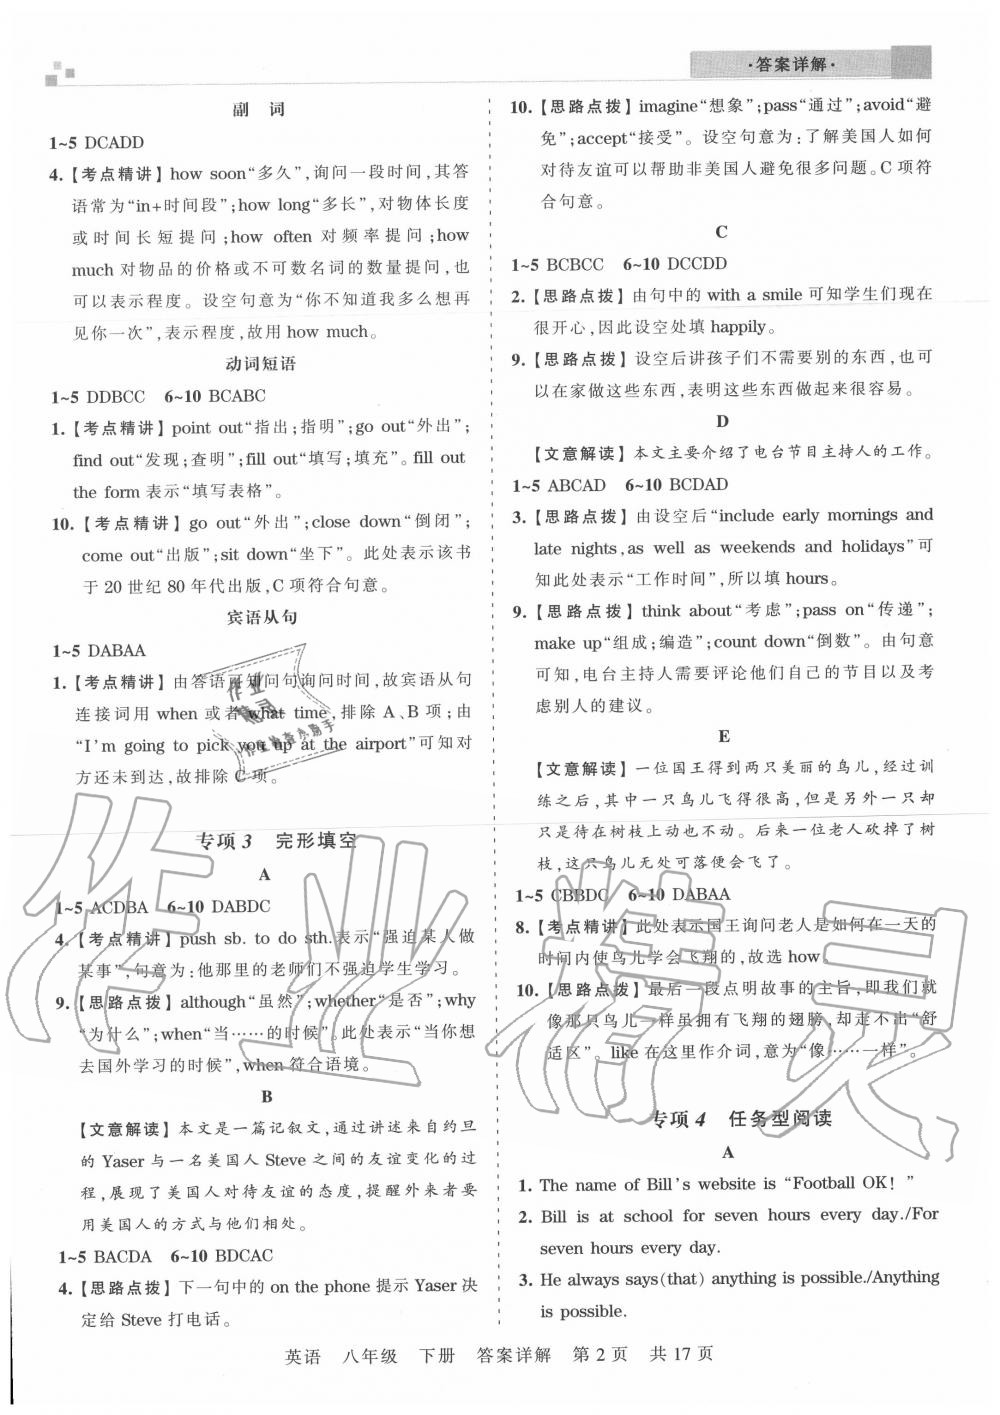 ·答案详解·
副 词
1~5 DCADD
4.【考点精讲】how soon“多久”,询问一段时间,其答
语常为“in+时间段”;how long“多长”,对物体长度
或时间长短提问;how often 对频率提问;how
much 对物品的价格或不可数名词的数量提问,也
可以表示程度。设空句意为“你不知道我多么想再
见你一次”,表示程度,故用 how much。
动词短语
1~5 DDBCC 6~10 BCABC
1.【考点精讲】point out“指出;指明”;go out“外出”;
find out“发现;查明”;fill out“填写;填充”。fill out
the form 表示“填写表格”。
10.【考点精讲】go out“外出”;close down“倒闭”;
come out“出版”;sit down“坐下”。此处表示该书
于 20 世纪 80 年代出版,C 项符合句意。
宾语从句
1~5 DABAA
1.【考点精讲】由答语可知问句询问时间,故宾语从句
连接词用 when 或者 what time,排除 A、B 项;由
“I'm going to pick you up at the airport”可知对
方还未到达,故排除 C 项。
专项 3 完形填空
A
1~5 ACDBA 6~10 DABDC
4.【考点精讲】push sb. to do sth.表示“强迫某人做
某事”,句意为:他那里的老师们不强迫学生学习。
9.【思路点拨】although“虽然”;whether“是否”;why
“为什么”;when“当……的时候”。此处表示“当你想
去国外学习的时候”,when 符合语境。
B
【文意解读】本文是一篇记叙文,通过讲述来自约旦
的 Yaser 与一名美国人 Steve 之间的友谊变化的过
程,展现了美国人对待友谊的态度,提醒外来者要
用美国人的方式与他们相处。
1~5 BACDA 6~10 BDCAC
4.【思路点拨】下一句中的 on the phone 提示 Yaser 决
定给 Steve 打电话。
10.【思路点拨】imagine“想象”;pass“通过”;avoid“避
免”;accept“接受”。设空句意为:了解美国人如何
对待友谊可以帮助非美国人避免很多问题。C 项符
合句意。
C
1~5 BCBCC 6~10 DCCDD
2.【思路点拨】由句中的 with a smile 可知学生们现在
很开心,因此设空处填 happily。
9.【思路点拨】设空后讲孩子们不需要别的东西,也可
以在家做这些东西,表明这些东西做起来很容易。
D
【文意解读】本文主要介绍了电台节目主持人的工作。
1~5 ABCAD 6~10 BCDAD
3.【思路点拨】由设空后“include early mornings and
late nights,as well as weekends and holidays”可
知此处表示“工作时间”,所以填 hours。
9.【思路点拨】think about“考虑”;pass on“传递”;
make up“组成;编造”;count down“倒数”。由句意
可知,电台主持人需要评论他们自己的节目以及考
虑别人的建议。
E
【文意解读】一位国王得到两只美丽的鸟儿,经过训
练之后,其中一只鸟儿飞得很高,但是另外一只却
只是待在树枝上动也不动。后来一位老人砍掉了树
枝,这只鸟儿无处可落便会飞了。
1~5 CBBDC 6~10 DABAA
8.【考点精讲】此处表示国王询问老人是如何在一天的
时间内使鸟儿学会飞翔的,故选 how。
10.【思路点拨】最后一段点明故事的主旨,即我们就
像那只鸟儿一样虽拥有飞翔的翅膀,却走不出“舒
适区”。like 在这里作介词,意为“像……一样”。
专项 4 任务型阅读
A
1. The name of Bill's website is “Football OK!”
2. Bill is at school for seven hours every day./For
seven hours every day.
3. He always says(that) anything is possible./Anything
is possible.
英语 八年级 下册 答案详解 第 2 页 共 17 页
作业精灵